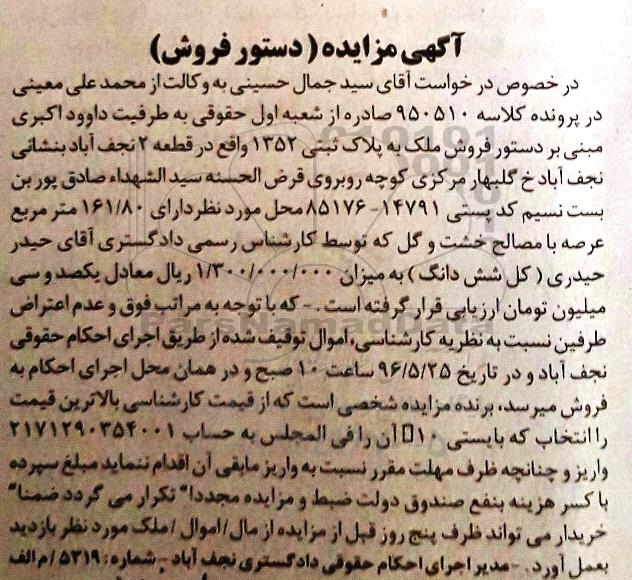 آگهی مزایده ( دستور فروش)
در خصوص در خواست آقای سید جمال حسینی به وکالت از محمد علی معینی
در پرونده کلاسه ۹۵۰۵۱۰ صادره از شعبه اول حقوقی به طرفیت داوود اکبری
مبنی بر دستور فروش ملک به پلاک ثبتی ۱۳۵۲ واقع در قطعه ۲ نجف آباد بنشانی
نجف آباد خ گلبهار مرکزی کوچه روبروی قرض الحسنه سید الشهداء صادق پور بن
بست نسیم کد پستی ۱۴۷۹۱- ۸۵۱۷۶ محل مورد نظر دارای ۱۶۱/۸۰ متر مربع
عرصه با مصالح خشت و گل که توسط کارشناس رسمی دادگستری آقای حیدر
حیدری ( کل شش دانگ ) به میزان ۱/۳۰۰/۰۰۰/۰۰۰ ریال معادل یکصد و سی
میلیون تومان ارزیابی قرار گرفته است . - که با توجه به مراتب فوق و عدم اعتراض
طرفین نسبت به نظریه کارشناسی، اموال توقیف شده از طریق اجرای احکام حقوقی
نجف آباد و در تاریخ ۹۶/۵/۲۵ ساعت ۱۰ صبح و در همان محل اجرای احکام به
فروش میرسد، برنده مزایده شخصی است که از قیمت کارشناسی بالاترین قیمت
را انتخاب که بایستی ۱۰□ آن را فی المجلس به حساب ۲۱۷۱۲۹۰۳۵۴۰۰۱
واریز و چنانچه ظرف مهلت مقرر نسبت به واریز مابقی آن اقدام ننماید مبلغ سپرده
با کسر هزینه بنفع صندوق دولت ضبط و مزایده مجددا" تکرار می گردد ضمنا"
خریدار می تواند ظرف پنج روز قبل از مزایده از مال/اموال /ملک مورد نظر بازدید
بعمل آورد . -مدیر اجرای احکام حقوقی دادگستری نجف آباد - شماره: ۵۳۱۹ /م الف
ParsNamadData